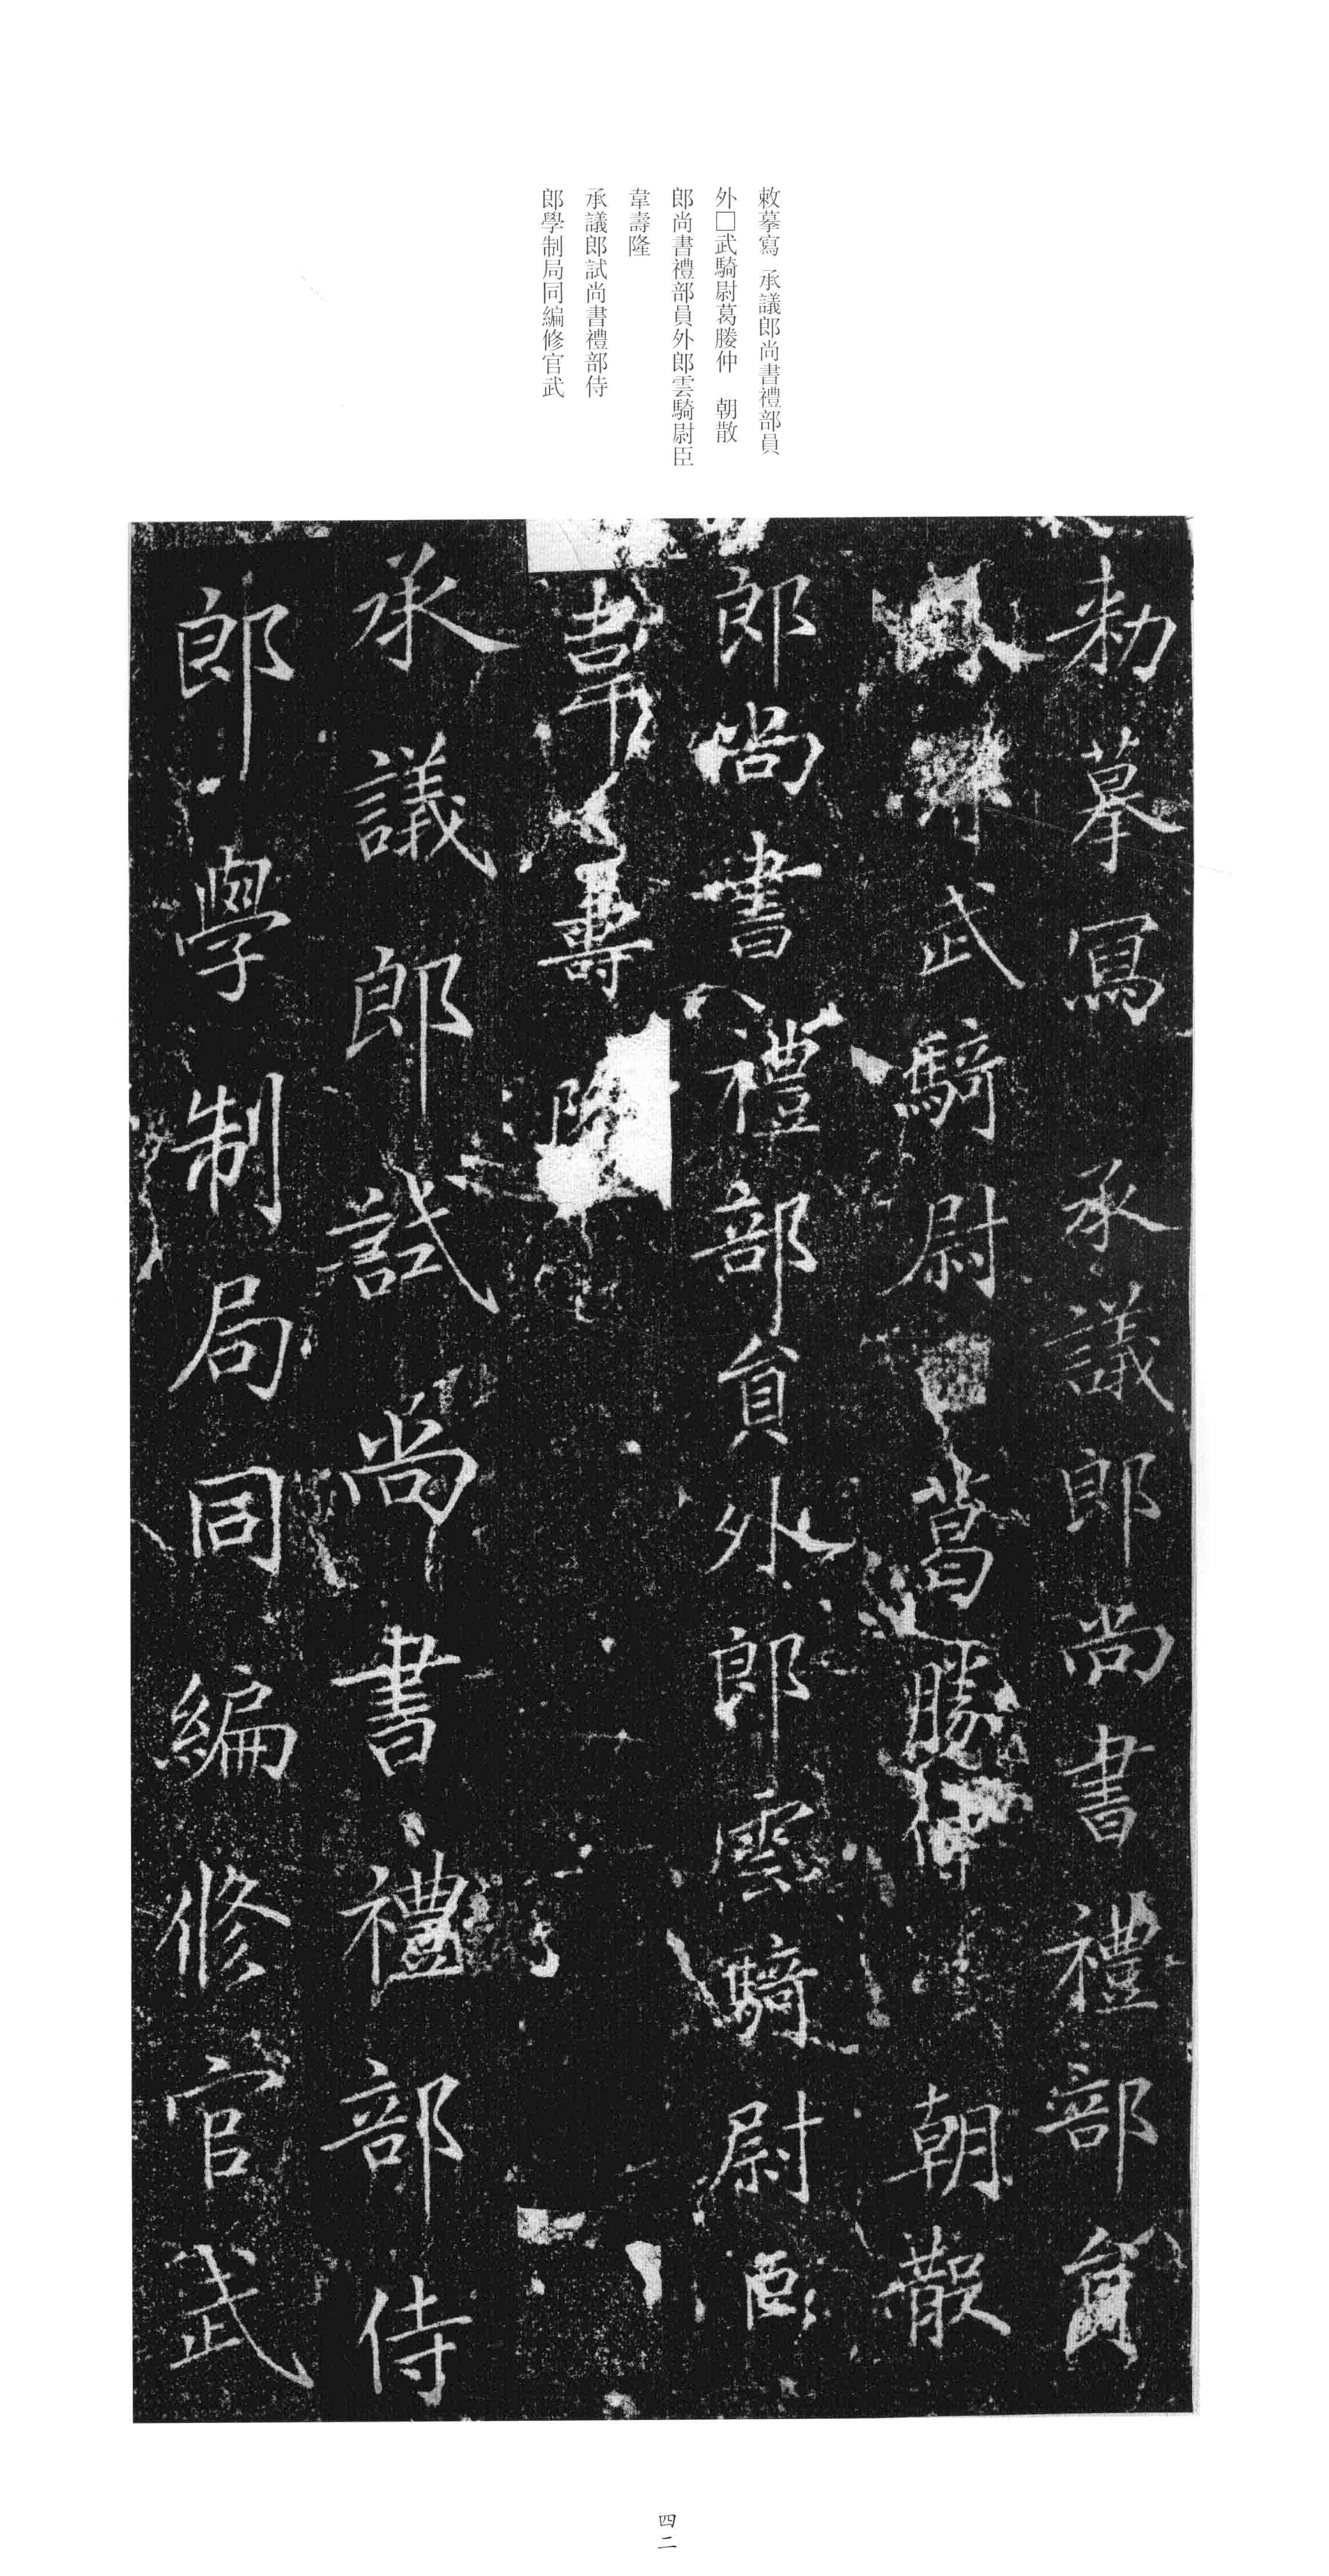 敕摹寫 承議郎尚書禮部員
外□武騎尉葛勝仲 朝散
郎尚書禮部員外郎雲騎尉臣
韋壽隆
承議郎試尚書禮部侍
郎學制局同編修官武
勑摹寫 承議郎尚書禮部貟
武騎尉 葛勝仲 朝散
郎尚書禮部貟外郎雲騎尉臣
韋壽隆
承議郎試尚書禮部侍
郎學制局同編修官武
四二